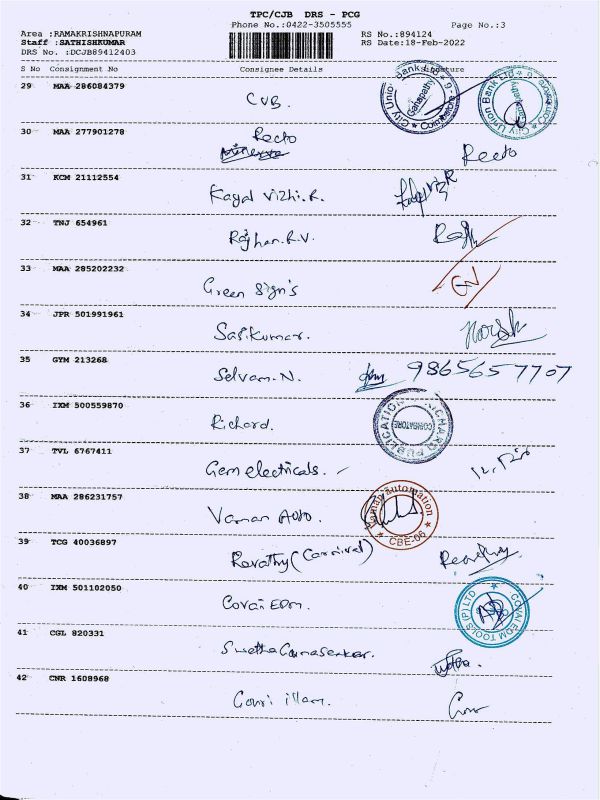 TPC/CJB DRS - PCG
Phone No.:0422-3505555 Page No.:3
Area :RAMAKRISHNAPURAM RS No.:894124
Staff :SATHISHKUMAR RS Date:18-Feb-2022
DRS No. :DCJB89412403
S No Consignment No Consignee Details Signature
29 MAA 286084379
CUB.
City Union Bank Ltd Ganapathy Coimbatore
City Union Bank Ltd
30 MAA 277901278
Recto
Recto
31 KCM 21112554
Kayal Vizhi.R.
32 TNJ 654961
Rajhan.R.V.
33 MAA 285202232
Green Sign's
34 JPR 501991961
Sasikumar.
35 GYM 213268
Selvam.N. 9865657707
36 IXM 500559870
Richard.
RICHARD PUBLICATION COIMBATORE
37 TVL 6767411
Gem electricals.
38 MAA 286231757
Vaman Auto.
Raman Automation CBE-06
39 TCG 40036897
Revathy (Carnival)
40 IXM 501102050
Covai EDM.
COVAI EDM TOOLS (P) LTD
41 CGL 820331
Swetha Gunasenkar.
42 CNR 1608968
Gowri illam.